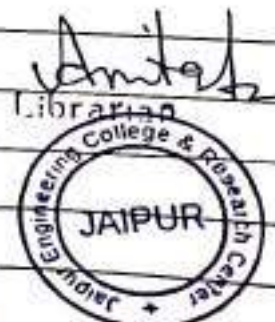 Librarian
Jaipur Engineering College & Research Center
JAIPUR